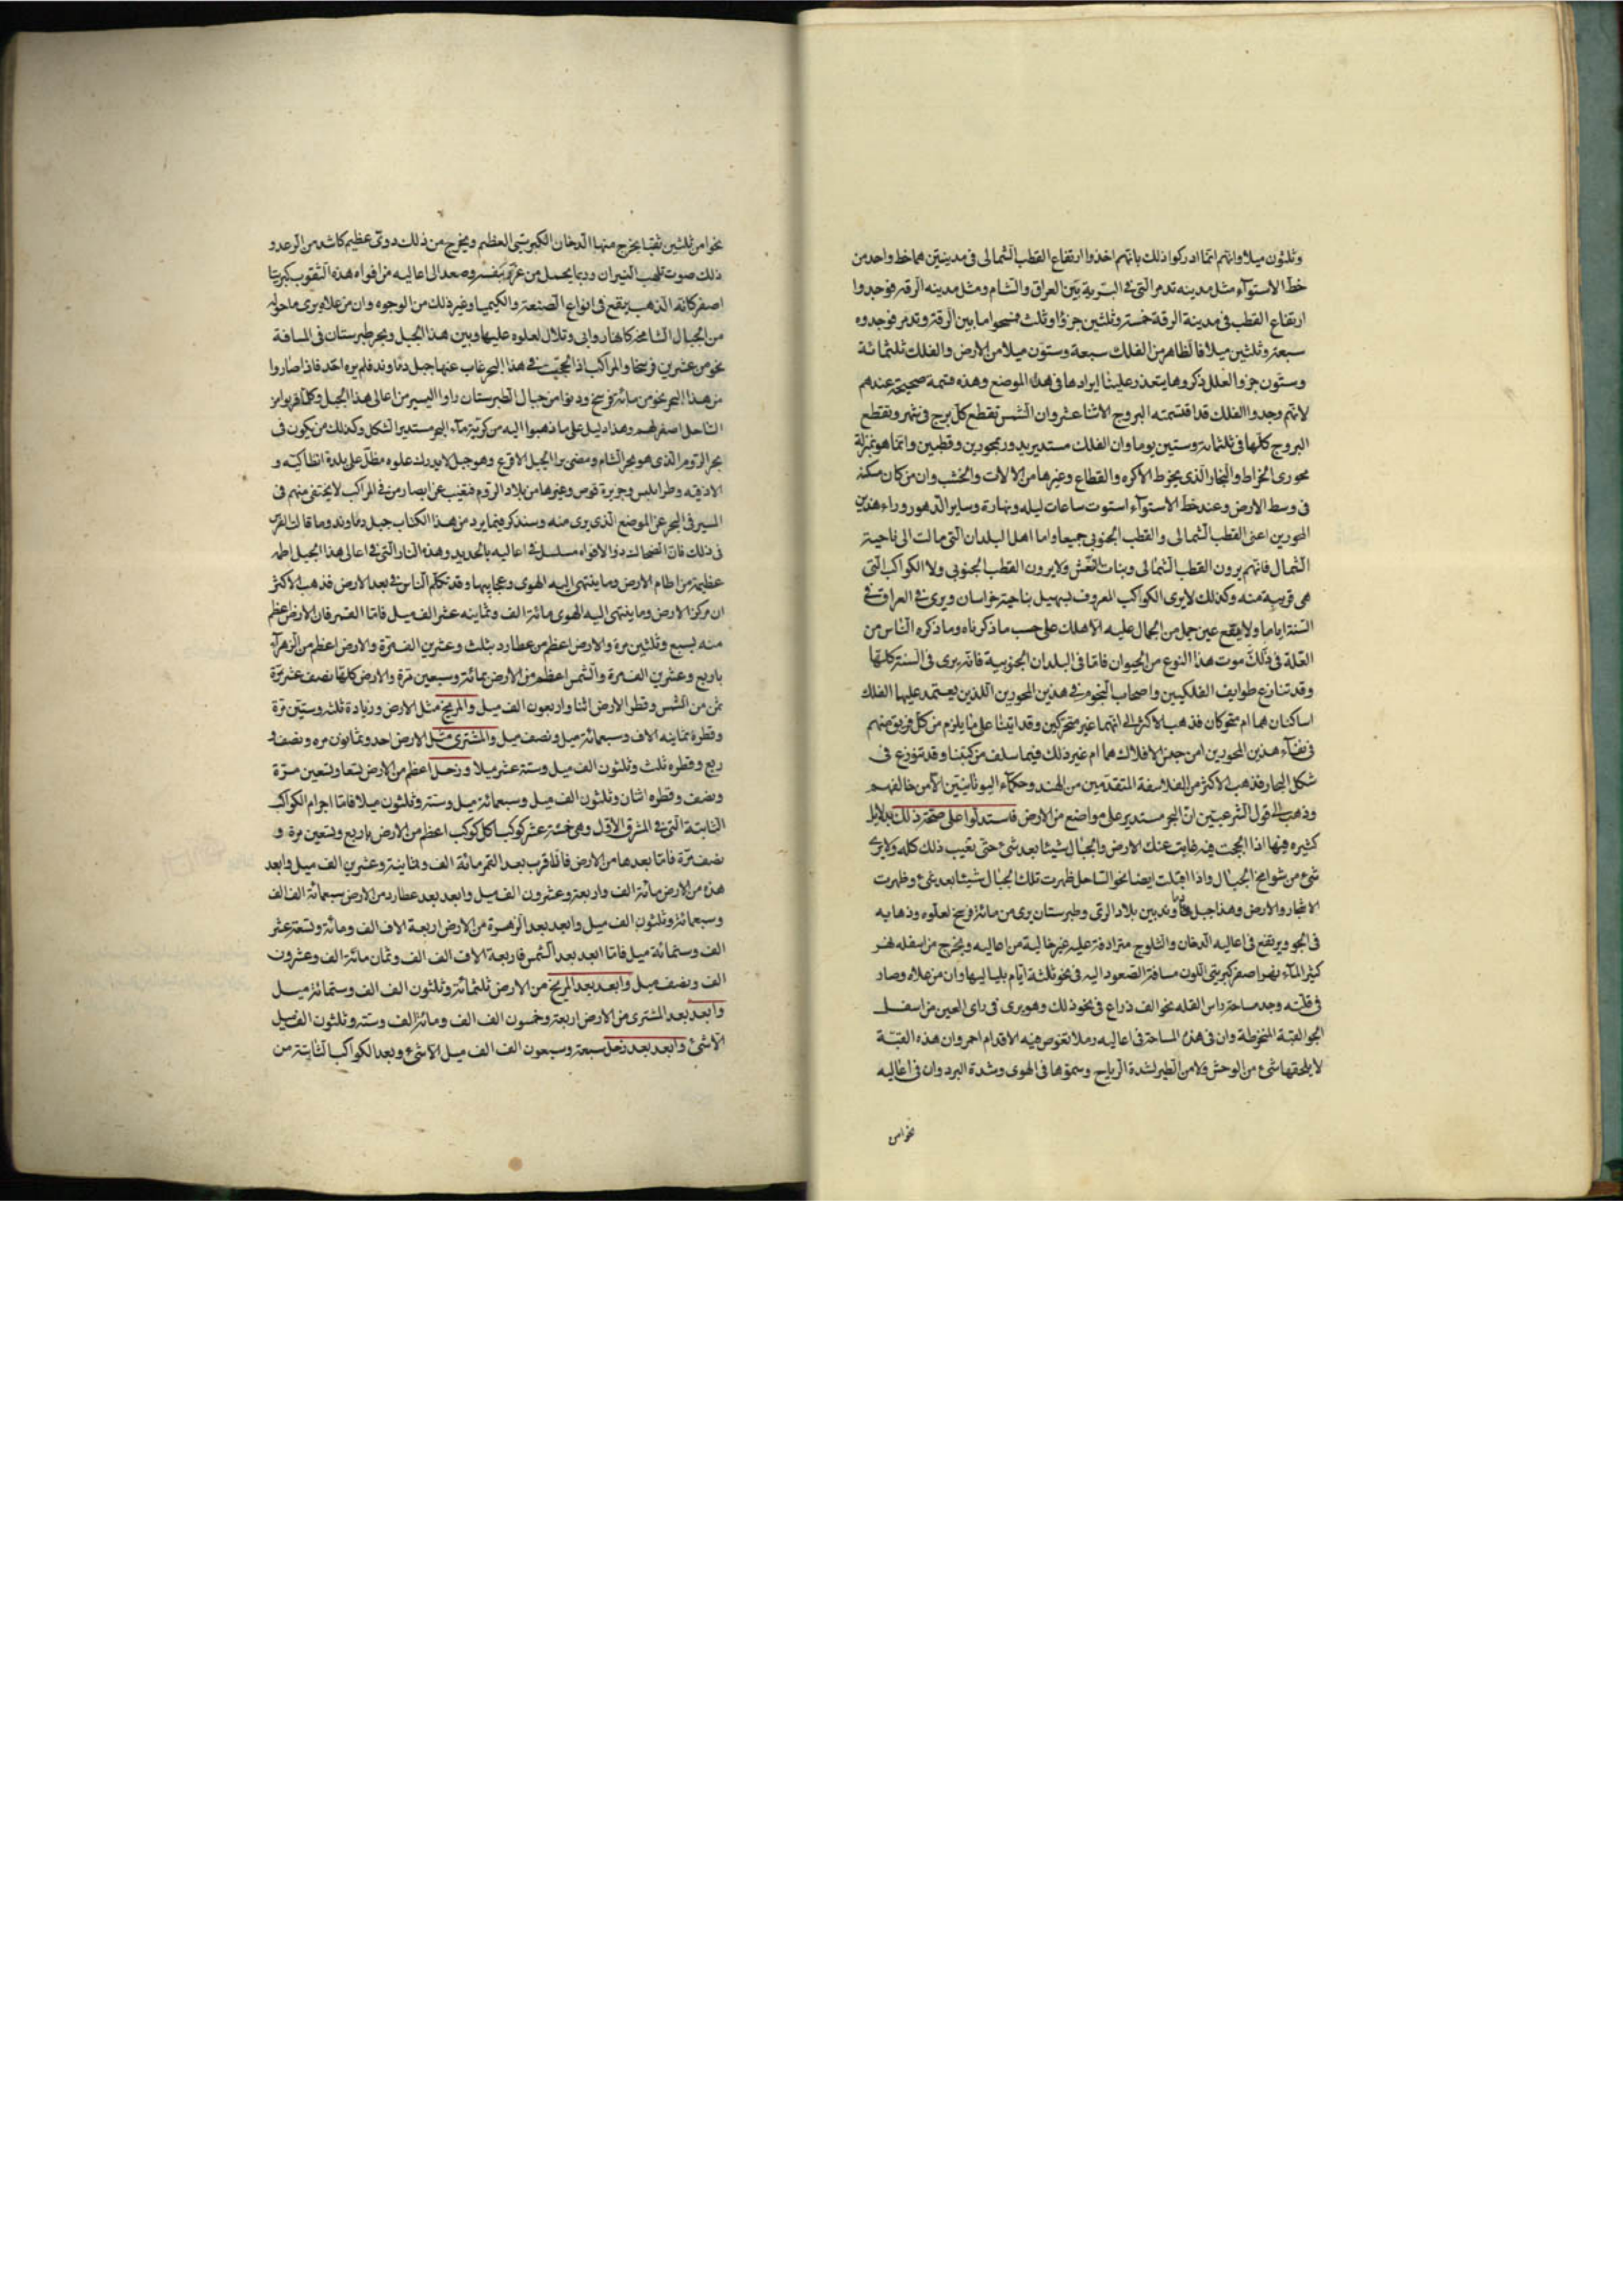 وثلثون ميلا وانهم انما ادركوا ذلك بانهم اخذوا ارتفاع القطب الشمالى فى مدينتين هما خط واحد من
خط الاستوآء مثل مدينه تدمر التى فى البرية بين العراق والشام ومثل مدينه الرقه فوجدوا
ارتفاع القطب فى مدينة الرقة خمسة وثلثين جزؤا وثلث فسحوا ما بين الرقة وتدمر فوجدوه
سبعة وثلثين ميلا فالظاهر من الفلك سبعة وستون ميلا من الارض والفلك ثلثمائة
وستون جزوا لعلل ذكروها يتعذر علينا ايرادها فى هذا الموضع وهذه قسمة صحيحة عندهم
لانهم وجدوا الفلك قد اقتسمته البروج الاثنا عشر وان الشمس تقطع كل برج فى شهر وتقطع
البروج كلها فى ثلثمائة وستين يوما وان الفلك مستدير يدور بمحورين وقطبين وانما هو بمنزلة
محورى الخراط والنجار الذى يخرط الاكره والقطاع وغيرها من الالات والخشب وان من كان مسكنه
فى وسط الارض وعند خط الاستوآء استوت ساعات ليله ونهارة وساير الدهور وراء هذين
المحورين اعنى القطب الشمالى والقطب الجنوبى جميعا واما اهل البلدان التى مالت الى ناحية
الشمال فانهم يرون القطب الشمالى وبنات نعش ولا يرون القطب الجنوبى ولا الكواكب التى
هى قريبة منه وكذلك لا يرى الكواكب المعروف بسهيل بناحية خراسان ويرى فى العراق فى
السنة اياما ولا يقع عين جمل من الجمال عليه الا هلك على حسب ما ذكرناه وما ذكره الناس من
العلة فى ذلك موت هذا النوع من الحيوان فاما فى البلدان الجنوبية فانه يرى فى السنة كلها
وقد تنازع طوايف الفلكيين واصحاب النجوم فى هذين المحورين اللذين يعتمد عليها الفلك
اساكنان هما ام متحركان فذهب الاكثر الى انهما غير متحركين وقد اتينا على ما يلزم من كل فريق منهم
فى هذين المحورين امن جنس الافلاك هما ام غير ذلك فيما سلف من كتبنا وقد تنوزع فى
شكل البحار فذهب الاكثر من الفلاسفة المتقدمين من الهند وحكمآء اليونانيين الا من خالفهم
وذهب الى قول الشرعيين ان البحر مستدير على مواضع من الارض فاستدلوا على صحة ذلك بدلايل
كثيره منها اذا لججت فيه غابت عنك الارض والجبال شيئا بعد شئ حتى تغيب ذلك كله ولا يرى
شئ من شوامخ الجبال واذا اقبلت ايضا نحو الساحل ظهرت تلك الجبال شيئا بعد شئ وظهرت
الاشجار والارض وهذا جبل دنباوند بين بلاد الرى وطبرستان يرى من مائة فرسخ لعلوه وذهابه
فى الجو ويرتفع فى اعاليه الدخان والثلوج مترادفة عليه غير خالية من اعاليه ويخرج من اسفله نهر
كثير المآء نهر اصفر كبريتى اللون مسافة الصعود اليه فى نحو ثلثة ايام بلياليها وان من علاه وصار
فى قلته وجد مساحة راس القله نحو الف ذراع فى نحو ذلك وهو يرى فى راى العين من اسفل
نحو القبة المنخرطة وان فى هذه المساحة فى اعاليه رملا تغوص فيه الاقدام احمر وان هذه القبة
لا يلحقها شئ من الوحش ولا من الطير لشدة الرياح وسموها فى الهوى وشدة البرد وان فى اعاليه
نحوا من
نحوا من ثلثين ثقبا يخرج منها الدخان الكبريتى العظيم ويخرج من ذلك دوى عظيم كاشد من الرعد و
ذلك صوت تلهب النيران وربما يحمل من غرر بنفسه وصعد الى اعاليه من افواه هذه الثقوب كبريتا
اصفر كانه الذهب يقع فى انواع الصنعة والكيميا وغير ذلك من الوجوه وان من علاه يرى ما حوله
من الجبال الشامخة كانها روابى وتلال لعلوه عليها وبين هذا الجبل وبحر طبرستان فى المسافة
نحو من عشرين فرسخا والمراكب اذا لججت فى هذا البحر غاب عنها جبل دنباوند فلم يره احد فاذا صاروا
من هذا البحر نحو من مائة فرسخ ودنوا من جبال الطبرستان راوا اليسير من اعالى هذا الجبل وكلما قربوا من
الساحل اصفر لهم وهذا دليل على ما ذهبوا اليه من كرية مآء البحر مستدير الشكل وكذلك من يكون فى
بحر الروم الذى هو بحر الشام ومضى برا الجبل الاقرع وهو جبل لا يدرك علوه مطل على بلدة انطاكية و
الاذقيه وطرابلس وجزيرة قبرص وغيرها من بلاد الروم فيغيب عن ابصار من فى المراكب لا يختفى منهم فى
المسير فى البحر عن الموضع الذى يرى منه وسنذكر فيما يرد من هذا الكتاب جبل دنباوند وما قالت الفرس
فى ذلك فان الضحاك ذو الافواه مسلسل فى اعاليه بالحديد وهذه النار التى فى اعالى هذا الجبل اطمه
عظيمة من اطام الارض وما ينتهى اليه الهوى وعجايبها وقد تكلم الناس فى بعد الارض فذهب الاكثر
ان مركز الارض وما ينتهى اليه الهوى مائة الف وثمانيه عشر الف ميل فاما القمر فان الارض اعظم
منه بسبع وثلثين مرة والارض اعظم من عطارد بثلث وعشرين الف مرة والارض اعظم من الزهرآ
باربع وعشرين الف مرة والشمس اعظم من الارض بمائة وسبعين مرة والارض كلها نصف عشر مرة
ثمن من الشمس وقطر الارض اثنا واربعون الف ميل والمريخ مثل الارض وزيادة ثلثه وستين مرة
وقطره ثمانيه الاف وسبعمائة ميل ونصف ميل والمشترى مثل الارض احد وثمانون مره ونصف و
ربع وقطره ثلث وثلثون الف ميل وستة عشر ميلا وزحل اعظم من الارض تسعا وتسعين مرة
ونصف وقطره اثنان وثلثون الف ميل وسبعمائة ميل وستة وثلثون ميلا فاما اجرام الكواكب
الثابتة التى فى المشرق الاول وهى خمسة عشر كوكبا كل كوكب اعظم من الارض باربع وتسعين مرة و
نصف مرة فاما بعدها من الارض فان اقرب بعد القمر مائة الف وثمانية وعشرين الف ميل وابعد
هذه من الارض مائة الف واربعة وعشرون الف ميل وابعد بعد عطارد من الارض سبعمائة الف الف
وسبعمائة وثلثون الف ميل وابعد بعد الزهرة من الارض اربعة الاف الف ومائة وتسعة عشر
الف وستمائة ميل فاما ابعد بعد الشمس فاربعة الاف الف الف وثمان مائة الف وعشرون
الف ونصف ميل وابعد بعد المريخ من الارض ثلثمائة وثلثون الف الف وستمائة ميل
وابعد بعد المشترى من الارض اربعة وخمسون الف الف ومائة الف وستة وثلثون الف ميل
الا شئ وابعد بعد زحل سبعة وسبعون الف الف ميل الا شئ وبعد الكواكب الثابتة من